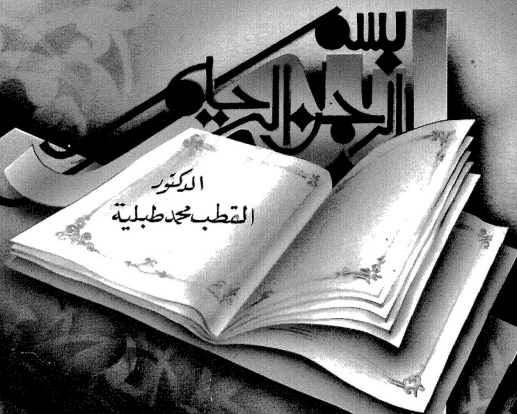 بسم
الله الرحمن الرحيم
الدكتور
القطب محمد طبلية